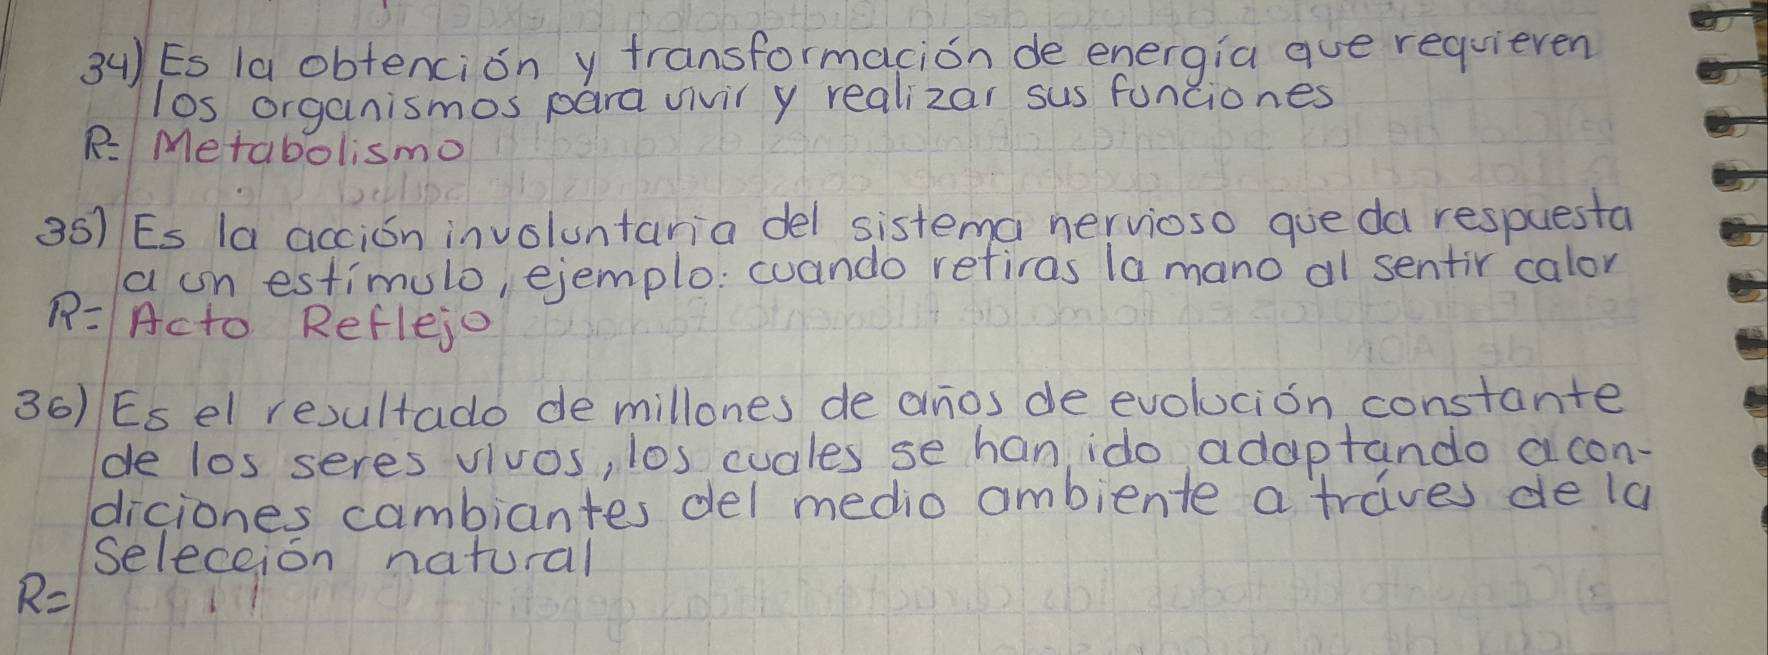 34) Es la obtención y transformación de energía que requieren
los organismos para vivir y realizar sus funciones
R= Metabolismo
35) Es la acción involuntaria del sistema nervioso que da respuesta
a un estímulo, ejemplo: cuando retiras la mano al sentir calor
R= Acto Reflejo
36) Es el resultado de millones de años de evolución constante
de los seres vivos, los cuales se han ido adaptando a con-
diciones cambiantes del medio ambiente a tráves de la
Selección natural
R=